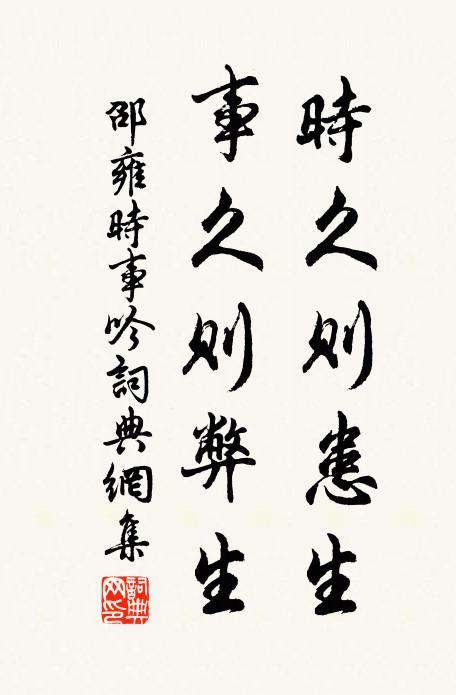 時久則患生
事久則弊生
邵雍時事吟詞典網集
詞典网印